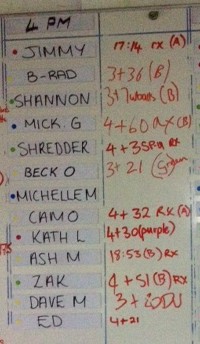 4 PM
JIMMY 17:14 RX (A)
B-RAD 3+36 (B)
SHANNON 3+17 (B)
MICK. G 4+60 (B)
SHREDDER 4+35 RX
BECK O 3+21
MICHELLE M
CAM O 4+32 RX (A)
KATH L 4+30 (purple)
ASH M 18:53 (B) RX
ZAK 4+51 (B) RX
DAVE M 3+
ED 4+21